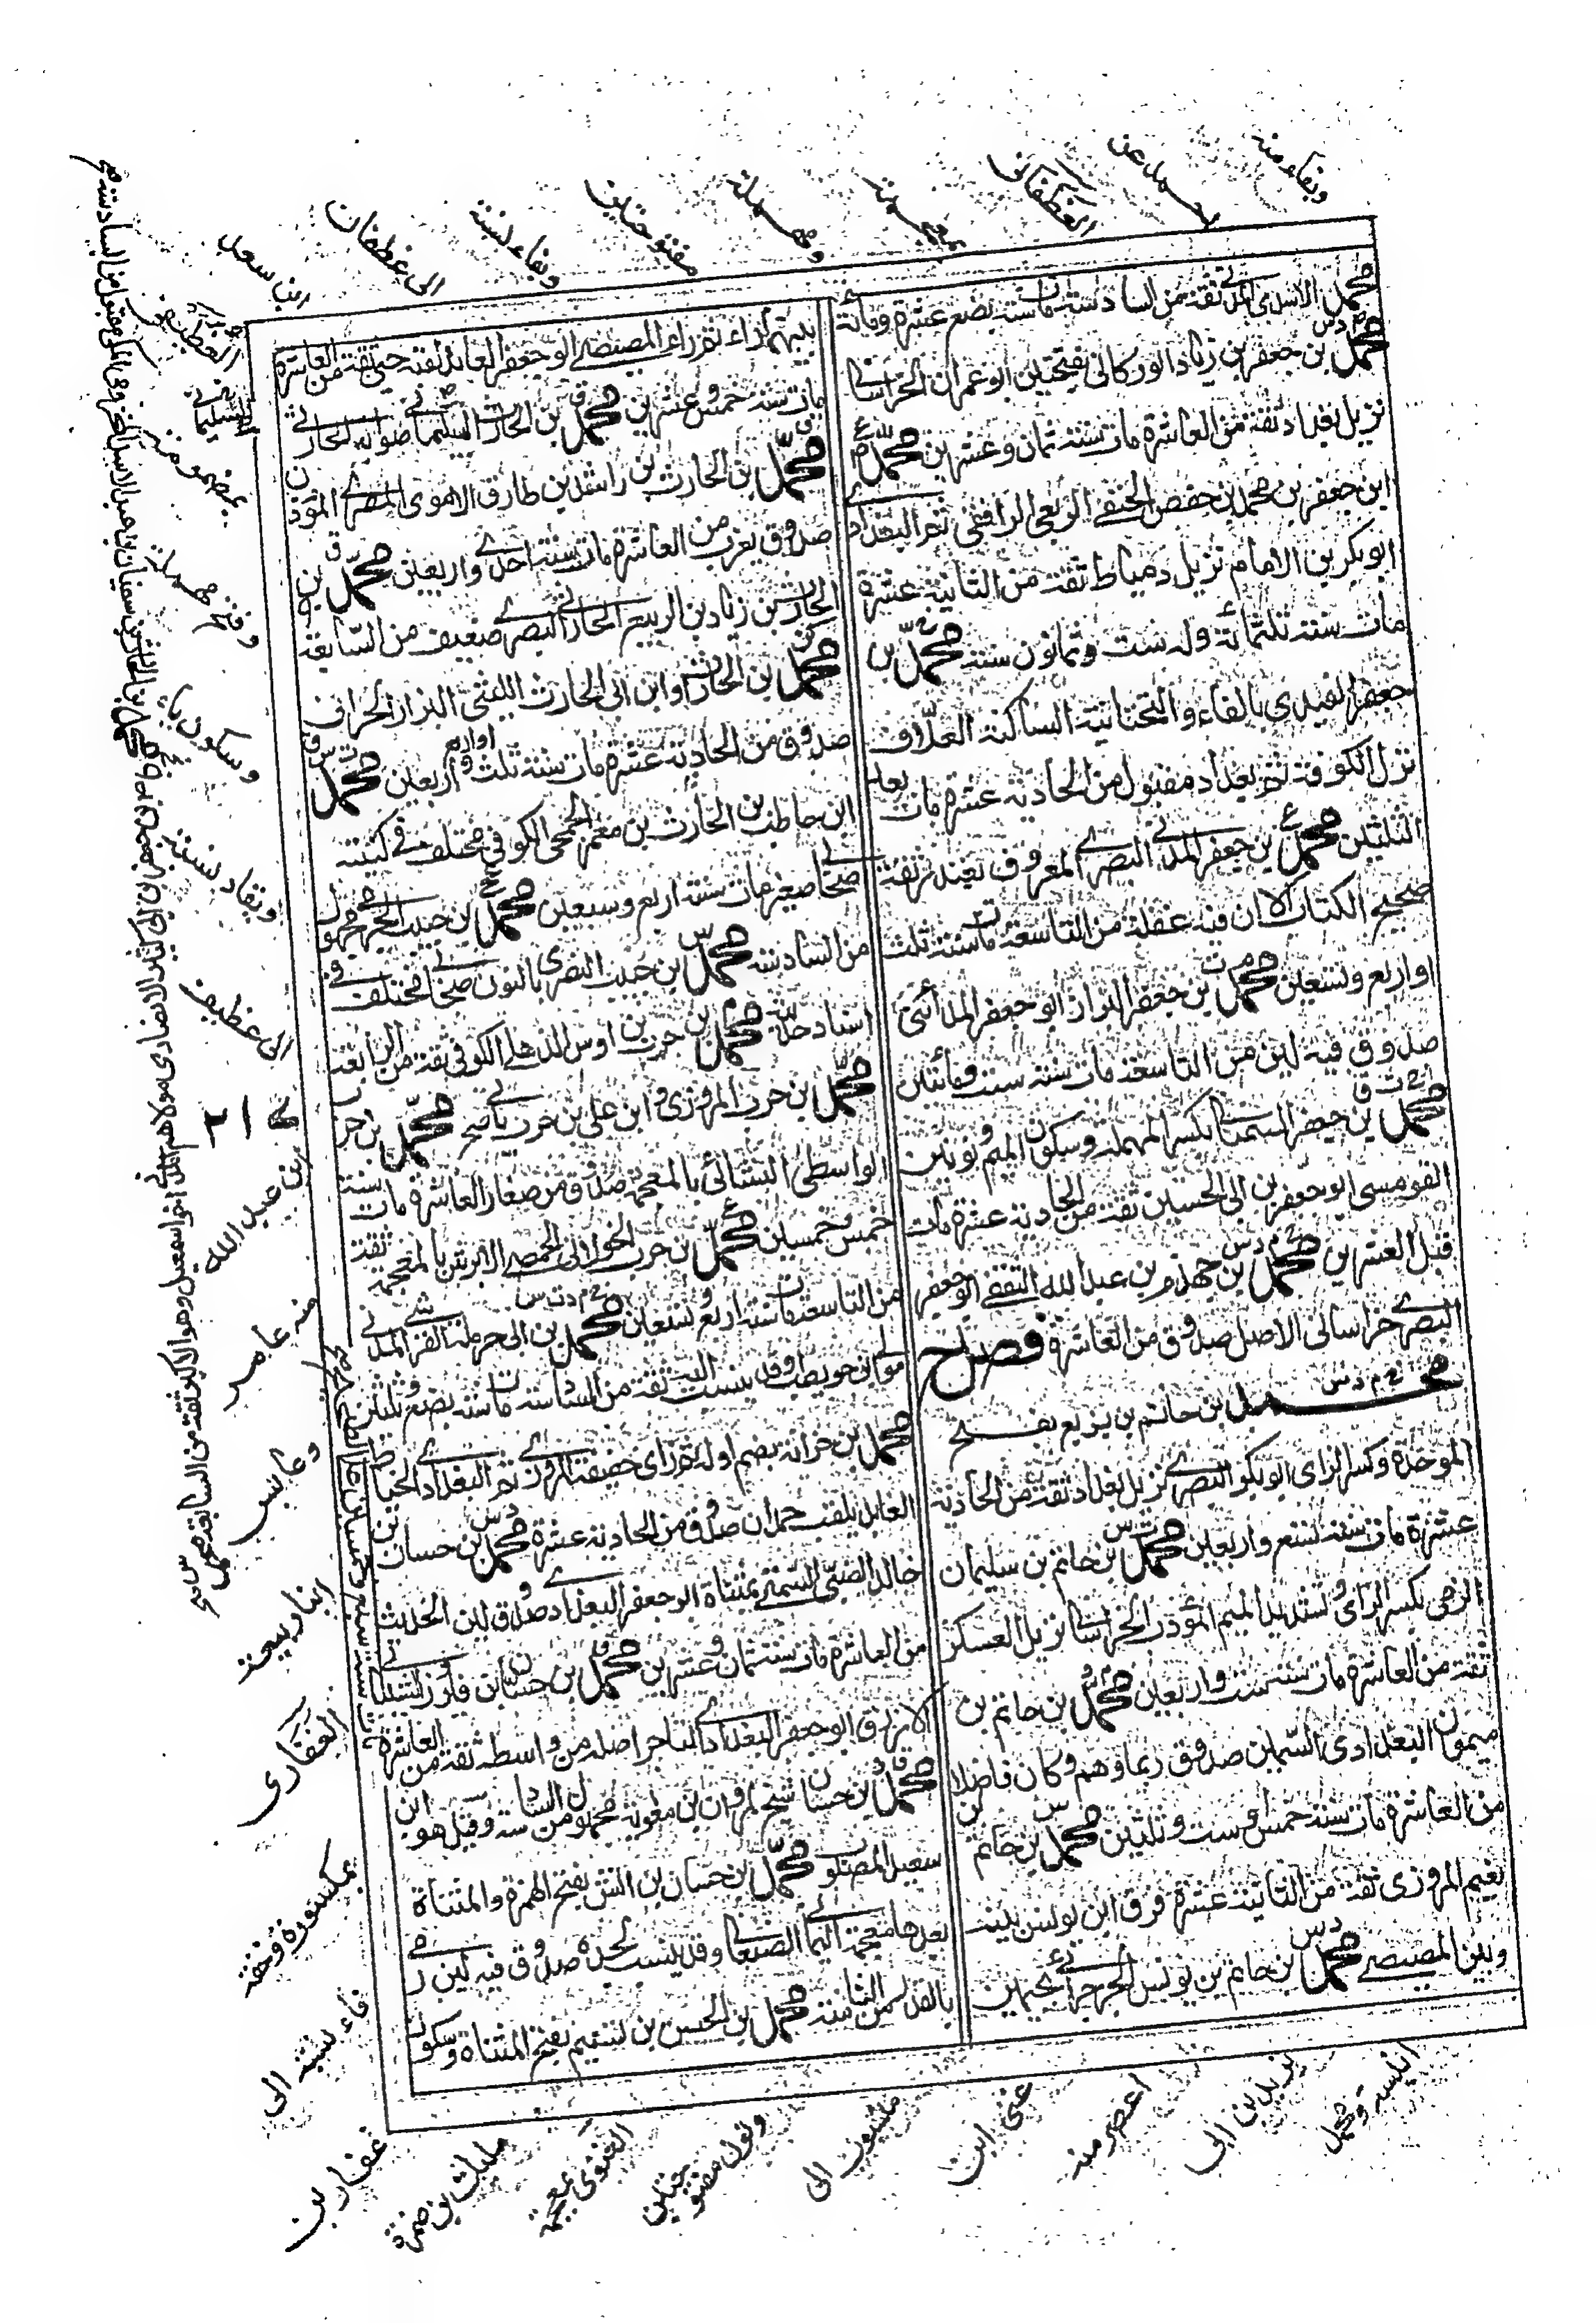 محمد الاسلمى المدنى ثقة من السادسة مات سنة بضع عشرة ومائة
محمد بن جعفر بن زياد الوركانى بفتحتين ابو عمران الخراسانى
نزيل بغداد ثقة من العاشرة مات سنة ثمان وعشرين محمد
ابن جعفر بن محمد بن حفص الحنفى الربعى الرافقى ثم البغدادى
ابو بكر بن الامام نزيل دمياط ثقة من الثانية عشرة
مات سنة ثلثمائة وله ست وثمانون سنة محمد بن
جعفر الفيدى بالفاء والتحتانية الساكنة العلاف
نزل الكوفة ثم بغداد مقبول من الحادية عشرة مات بعد
الثلثين محمد بن جعفر المدنى البصرى المعروف بغندر ثقة
صحيح الكتاب الا ان فيه غفلة من التاسعة مات سنة ثلث
او اربع وتسعين محمد بن جعفر البزاز ابو جعفر المدائنى
صدوق فيه لين من التاسعة مات سنة ست ومائتين
محمد بن جعفر السمنانى بكسر المهملة وسكون الميم ونونين
القومسى ابو جعفر بن ابى الحسين ثقة من الحادية عشرة مات
قبل العشرين محمد بن جهضم بن عبد الله الثقفى ابو جعفر
البصرى خراسانى الاصل صدوق من العاشرة فصل ح
محمد بن حاتم بن بزيع بفتح
الموحدة وكسر الزاى ابو بكر البصرى نزيل بغداد ثقة من الحادية
عشرة مات سنة تسع واربعين محمد بن حاتم بن سليمان
الزمى بكسر الزاى وتشديد الميم المؤدب الخراسانى نزيل العسكر
ثقة من العاشرة مات سنة ست واربعين محمد بن حاتم بن
ميمون البغدادى السمين صدوق ربما وهم وكان فاضلا
من العاشرة مات سنة خمس او ست وثلثين محمد بن حاتم بن
نعيم المروزى ثقة من الثانية عشرة فرق ابن يونس بينه
وبين المصيصى محمد بن حاتم بن يونس الجرجرائى بجيمين
بينهما راء ثم راء المصيصى ابو جعفر العابد لقبه حبى ثقة من العاشرة
مات سنة خمس وعشرين محمد بن الحارث السليمانى صوابه الحارثى
محمد بن الحارث بن راشد بن طارق الاموى المصرى المؤذن
صدوق يغرب من العاشرة مات سنة احدى واربعين محمد بن
الحارث بن زياد بن الربيع الحارثى البصرى ضعيف من السابعة
محمد بن الحارث او ابن ابى الحارث الليثى البزاز الحرانى
صدوق من الحادية عشرة مات سنة ثلث او اربع واربعين محمد
ابن حاطب بن الحارث بن معمر الجمحى الكوفى مختلف فى كنيته
صحابى صغير مات سنة اربع وسبعين محمد بن حبيب الجرمى مجهول
من السادسة محمد بن حبيب النصرى بالنون صحابى مختلف فى
اسناد حديثه محمد بن حرب بن اوس الذهلى الكوفى ثقة من الرابعة
محمد بن حرب المروزى ابن على بن حرب ياتى محمد بن حرب
الواسطى النشائى بالمعجمة صدوق من صغار العاشرة مات سنة
خمس وخمسين محمد بن حرب الخولانى الحمصى الابرش بالمعجمة ثقة
من التاسعة مات سنة اربع وتسعين محمد بن ابى حرملة القرشى المدنى
مولى ابن حويطب وقد ينسب اليه ثقة من السادسة مات سنة بضع وثلثين
محمد بن خزابه بضم اوله ثم زاى خفيفة المروزى ثم البغدادى الخياط
العابد يلقب حمدان صدوق من الحادية عشرة محمد بن حسان بن
خالد الضبى السمتى بمثناة ابو جعفر البغدادى صدوق لين الحديث
من العاشرة مات سنة ثمان وعشرين محمد بن حسان بن فيروز الشيبانى
الازرق ابو جعفر البغدادى التاجر اصله من واسط ثقة من العاشرة
محمد بن حسان شيخ لمروان بن معوية مجهول من السادسة وقيل هو ابن
سعيد المصلوب محمد بن حسان بن اتش بفتح الهمزة والمثناة
بعدها معجمة اليمانى الصنعانى وقد ينسب لجده صدوق فيه لين رمى
بالقدر من التاسعة محمد بن الحسن بن تسنيم بفتح المثناة وسكون
وبفاء منه
الغطفانى
مفتوحتين
وبفاء نسبة
الى غطفان
بن سعد
وفتح مهملة
وسكون ياء
وبفاء نسبة
الى غطيف
بن عبد الله
منه عامر
وعابس
ابنا ربيعة
الغفارى
بمكسورة وخفة
فاء نسبة الى
غفار بن
مليك بن ضمرة
الغنوى بمعجمة
ونون مفتوحتين
منسوب الى
غنى ابن
اعصر منه